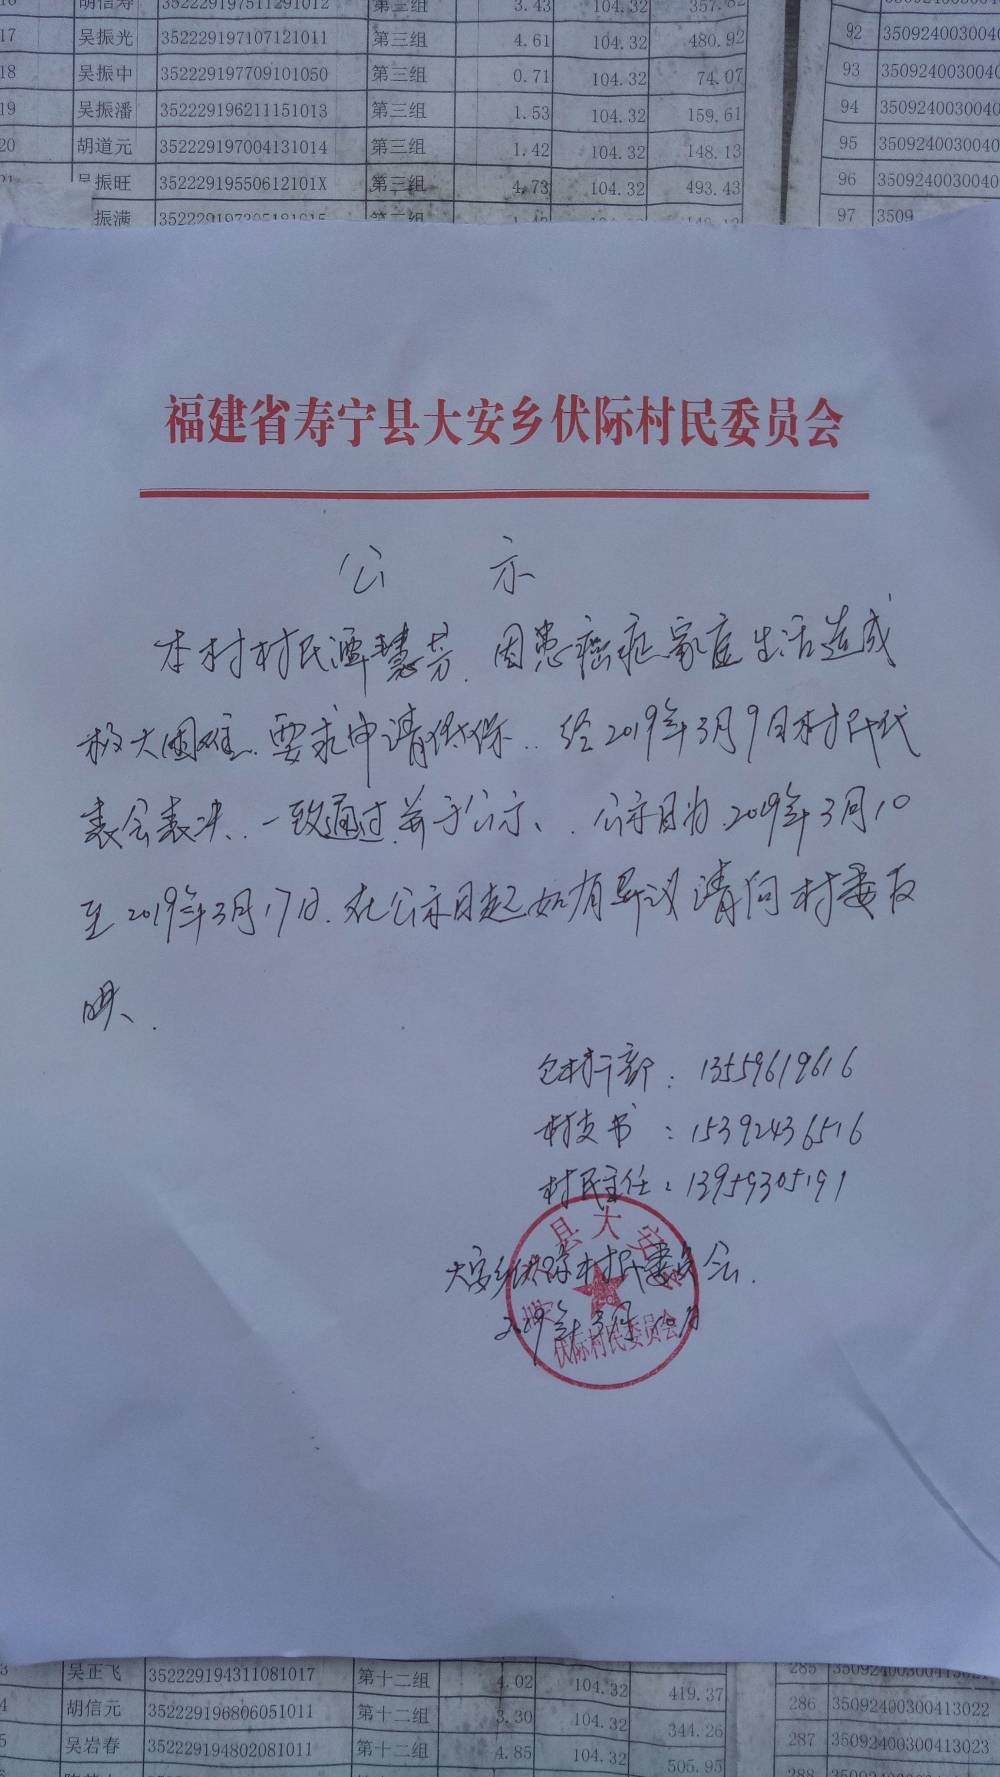 胡信寿 352229197511291012 第三组 3.43 104.32 357.82
17 吴振光 352229197107121011 第三组 4.61 104.32 480.92 92 3509240030040
18 吴振中 352229197709101050 第三组 0.71 104.32 74.07 93 3509240030040
19 吴振潘 352229196211151013 第三组 1.53 104.32 159.61 94 3509240030040
20 胡道元 352229197004131014 第三组 1.42 104.32 148.13 95 3509240030040
吴振旺 35222919550612101X 第三组 4.73 104.32 493.43 96 3509240030040
振满 97 3509
福建省寿宁县大安乡伏际村民委员会
公示
本村村民潭慧芳.因患癌症家庭生活造成
极大困难.要求申请低保..经2019年3月9日村民代
表会表决、一致通过.并于公示、.公示日为.2019年3月10
至2019年3月17日.在公示日起如有异议请向村委反
映、.
包村干部:13559619616
村支书:15392436516
村民主任:13959305191
大安乡伏际村民委员会.
2019年3月10日
县大安
伏际村民委员会
3 吴正飞 352229194311081017 第十二组 4.02 104.32 419.37 285 35092400300413021
4 胡信元 352229196806051011 第十二组 3.30 104.32 344.26 286 35092400300413022
5 吴岩春 352229194802081011 第十二组 4.85 104.32 505.95 287 35092400300413023
288